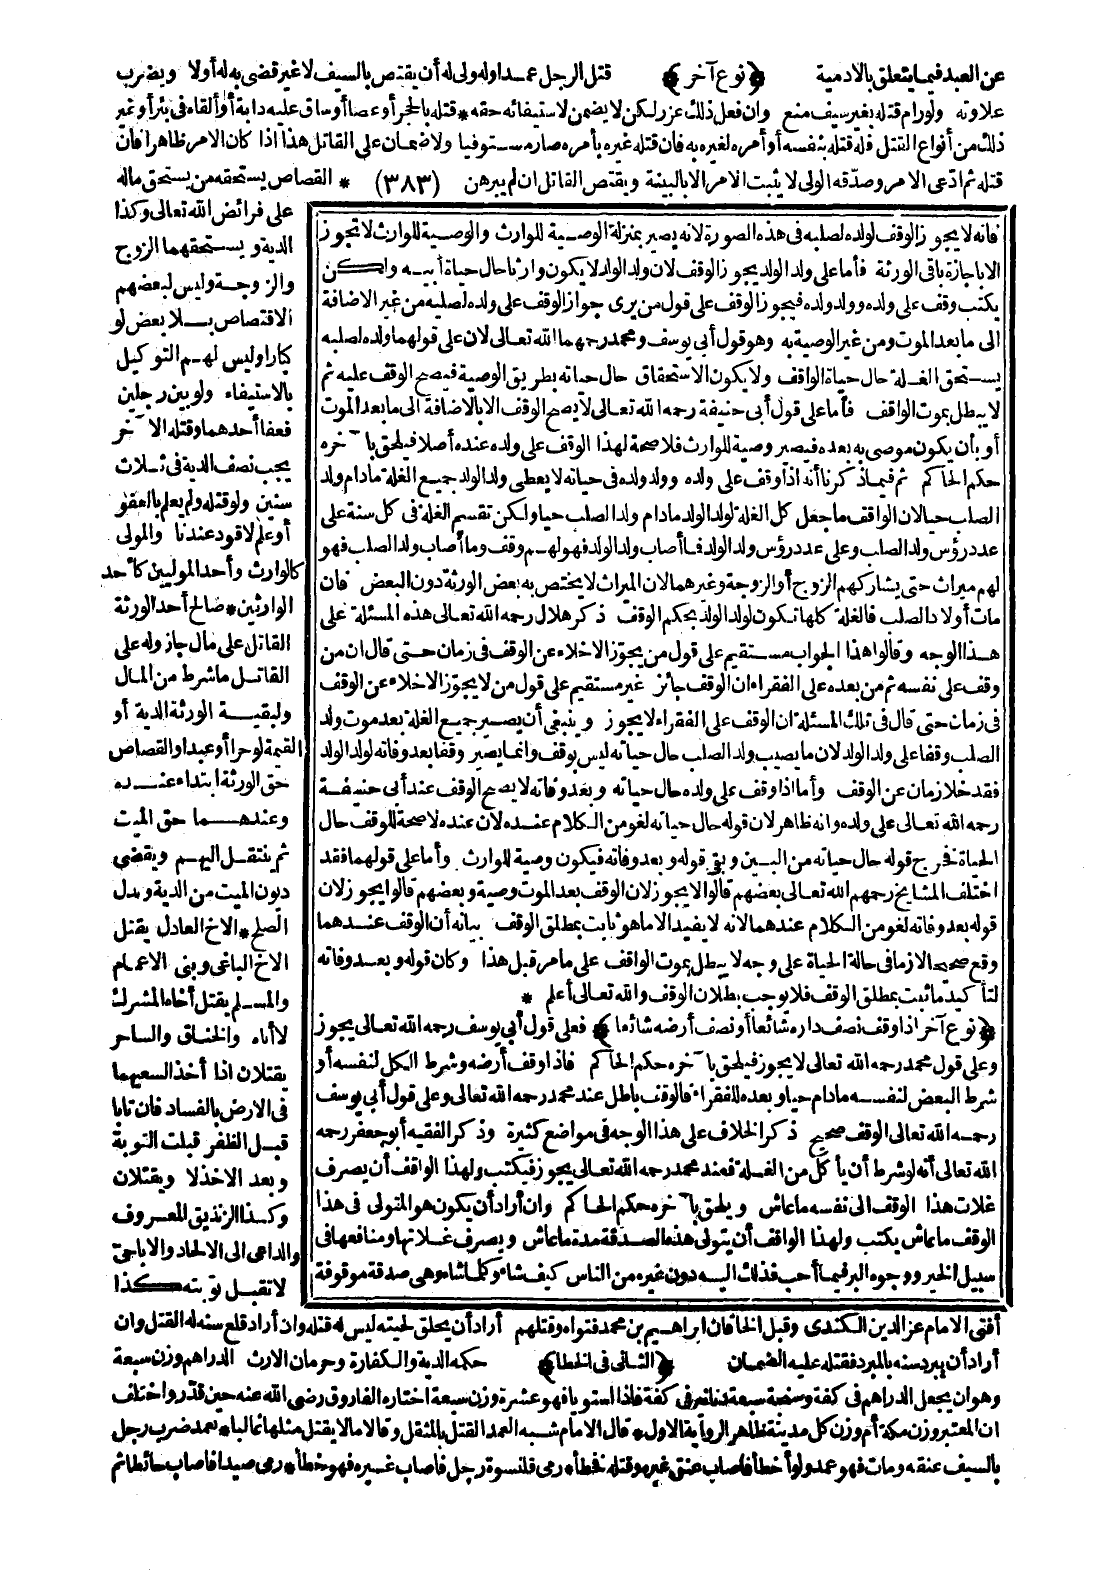 عن العبد فيما يتعلق بالادمية ﴿نوع آخر﴾ قتل الرجل عمدا وله ولى له أن يقتص بالسيف لا غير قضى به له أولا ويضرب
علاوته ولورام قتله بغير سيف منع وان فعل ذلك عزر لكن لا يضمن لاستيفائه حقه * قتله بالحجر أو عصا أو ساق عليه دابة أو ألقاه فى بئر أو غير
ذلك من أنواع القتل فله قتله بنفسه أو أمره لغيره به فان قتله غيره بأمره صار مستوفيا ولا ضمان على القاتل هذا اذا كان الامر ظاهرا فان
قتله ثم ادعى الامر وصدقه الولى لا يثبت الامر الا بالبينة ويقتص القاتل ان لم يبرهن (٣٨٣) * القصاص يستحقه من يستحق ماله
على فرائض الله تعالى وكذا
الدية ويستحقهما الزوج
والزوجة وليس لبعضهم
الاقتصاص بلا بعض لو
كبارا وليس لهم التوكيل
بالاستيفاء ولو بين رجلين
فعفا أحدهما وقتله الآخر
يجب نصف الدية فى ثلاث
سنين ولو قتله ولم يعلم بالعفو
أو علم لا قود عندنا والمولى
كالوارث وأحد الموليين كأحد
الوارثين * صالح أحد الورثة
القاتل على مال جاز وله على
القاتل ما شرط من المال
ولبقية الورثة الدية أو
القيمة لو حرا أو عبدا والقصاص
حق الورثة ابتداء عنده
وعندهما حق الميت
ثم ينتقل اليهم ويقضى
ديون الميت من الدية وبدل
الصلح * الاخ العادل يقتل
الاخ الباغى وبنى الاعمام
والمسلم يقتل أخاه المشرك
لا أباه والخناق والساحر
يقتلان اذا أخذا لسعيهما
فى الارض بالفساد فان تابا
قبل الظفر قبلت التوبة
وبعد الاخذ لا ويقتلان
وكذا الزنديق المعروف
والداعى الى الالحاد والاباحى
لا تقبل توبته كذا
فانه لا يجوز الوقف لولده لصلبه فى هذه الصورة لانه يصير بمنزلة الوصية للوارث والوصية للوارث لا تجوز
الا باجازة باقى الورثة فأما على ولد الولد يجوز الوقف لان ولد الولد لا يكون وارثا حال حياة أبيه ولكن
يكتب وقف على ولده وولد ولده فيجوز الوقف على قول من يرى جواز الوقف على ولده لصلبه من غير الاضافة
الى ما بعد الموت ومن غير الوصية به وهو قول أبى يوسف ومحمد رحمهما الله تعالى لان على قولهما ولده لصلبه
يستحق الغلة حال حياة الواقف ولا يكون الاستحقاق حال حياته بطريق الوصية فيصح الوقف عليه ثم
لا يبطل بموت الواقف فأما على قول أبى حنيفة رحمه الله تعالى لا يصح الوقف الا بالاضافة الى ما بعد الموت
أو بأن يكون موصى به بعده فيصير وصية للوارث فلا صحة لهذا الوقف على ولده عنده أصلا فيلحق بآخره
حكم الحاكم ثم فيما ذكرنا أنه اذا وقف على ولده وولد ولده فى حياته لا يعطى ولد الولد جميع الغلة ما دام ولد
الصلب حيا لان الواقف ما جعل كل الغلة لولد الولد ما دام ولد الصلب حيا ولكن تقسيم الغلة فى كل سنة على
عدد رؤس ولد الصلب وعلى عدد رؤس ولد الولد فما أصاب ولد الولد فهو لهم وقف وما أصاب ولد الصلب فهو
لهم ميراث حتى يشاركهم الزوج أو الزوجة وغيرهما لان الميراث لا يختص به بعض الورثة دون البعض فان
مات أولاد الصلب فالغلة كلها تكون لولد الولد بحكم الوقف ذكر هلال رحمه الله تعالى هذه المسئلة على
هذا الوجه وقالوا هذا الجواب مستقيم على قول من يجوز الاخلاء عن الوقف فى زمان حتى قال ان من
وقف على نفسه ثم من بعده على الفقراء ان الوقف جائز غير مستقيم على قول من لا يجوز الاخلاء عن الوقف
فى زمان حتى قال فى تلك المسئلة ان الوقف على الفقراء لا يجوز وينبغى أن يصير جميع الغلة بعد موت ولد
الصلب وقفا على ولد الولد لان ما يصيب ولد الصلب حال حياته ليس بوقف وانما يصير وقفا بعد وفاته لولد الولد
فقد خلا زمان عن الوقف وأما اذا وقف على ولده حال حياته وبعد وفاته لا يصح الوقف عند أبى حنيفة
رحمه الله تعالى على ولده وانه ظاهر لان قوله حال حياته لغو من الكلام عنده لان عنده لا صحة للوقف حال
الحياة فخرج قوله حال حياته من البين وبقى قوله وبعد وفاته فيكون وصية للوارث وأما على قولهما فقد
اختلف المشايخ رحمهم الله تعالى بعضهم قالوا لا يجوز لان الوقف بعد الموت وصية وبعضهم قالوا يجوز لان
قوله بعد وفاته لغو من الكلام عندهما لانه لا يفيد الا ما هو ثابت بمطلق الوقف بيانه أن الوقف عندهما
وقع صحيحا لازما فى حالة الحياة على وجه لا يبطل بموت الواقف على ما مر قبل هذا وكان قوله وبعد وفاته
لتأكيد ما ثبت بمطلق الوقف فلا يوجب بطلان الوقف والله تعالى أعلم *
﴿نوع آخر اذا وقف نصف داره شائعا أو نصف أرضه شائعا﴾ فعلى قول أبى يوسف رحمه الله تعالى يجوز
وعلى قول محمد رحمه الله تعالى لا يجوز فيلحق بآخره حكم الحاكم فاذا وقف أرضه وشرط الكل لنفسه أو
شرط البعض لنفسه ما دام حيا وبعده للفقراء فالوقف باطل عند محمد رحمه الله تعالى وعلى قول أبى يوسف
رحمه الله تعالى الوقف صحيح ذكر الخلاف على هذا الوجه فى مواضع كثيرة وذكر الفقيه أبو جعفر رحمه
الله تعالى أنه لو شرط أن يأكل من الغلة فعند محمد رحمه الله تعالى يجوز فيكتب ولهذا الواقف أن يصرف
غلات هذا الوقف الى نفسه ما عاش ويلحق بآخره حكم الحاكم وان أراد أن يكون هو المتولى فى هذا
الوقف ما عاش يكتب ولهذا الواقف أن يتولى هذه الصدقة مدة ما عاش ويصرف غلاتها ومنافعها فى
سبيل الخير ووجوه البر فيما أحب فذلك اليه دون غيره من الناس كيف شاء وكلما شاء وهى صدقة موقوفة
أفتى الامام عز الدين الكندى وقبل الخاقان ابراهيم بن محمد فتواه وقتلهم أراد أن يحلق لحيته ليس له قتله وان أراد قلع سنه له القتل وان
أراد أن يبرد سنه بالمبرد فقتله عليه الضمان ﴿الثانى فى الخطا﴾ حكمه الدية والكفارة وحرمان الارث الدراهم وزن سبعة
وهو ان يجعل الدراهم فى كفة وسبعة دنانير فى كفة فاذا استويا فهو عشرة وزن سبعة اختاره الفاروق رضى الله عنه حين قدر واختلف
ان المعتبر وزن مكة أم وزن كل مدينة ظاهر الرواية الاول * قال الامام شبه العمد القتل بالمثقل وقالا ما لا يقتل مثلها غالبا * تعمد ضرب رجل
بالسيف عنقه ومات فهو عمد ولو أخطأ فأصاب عنق غيره وقتله خطأ * رمى قلنسوة رجل فأصاب غيره فهو خطأ * رمى صيدا فأصاب حائطا ثم